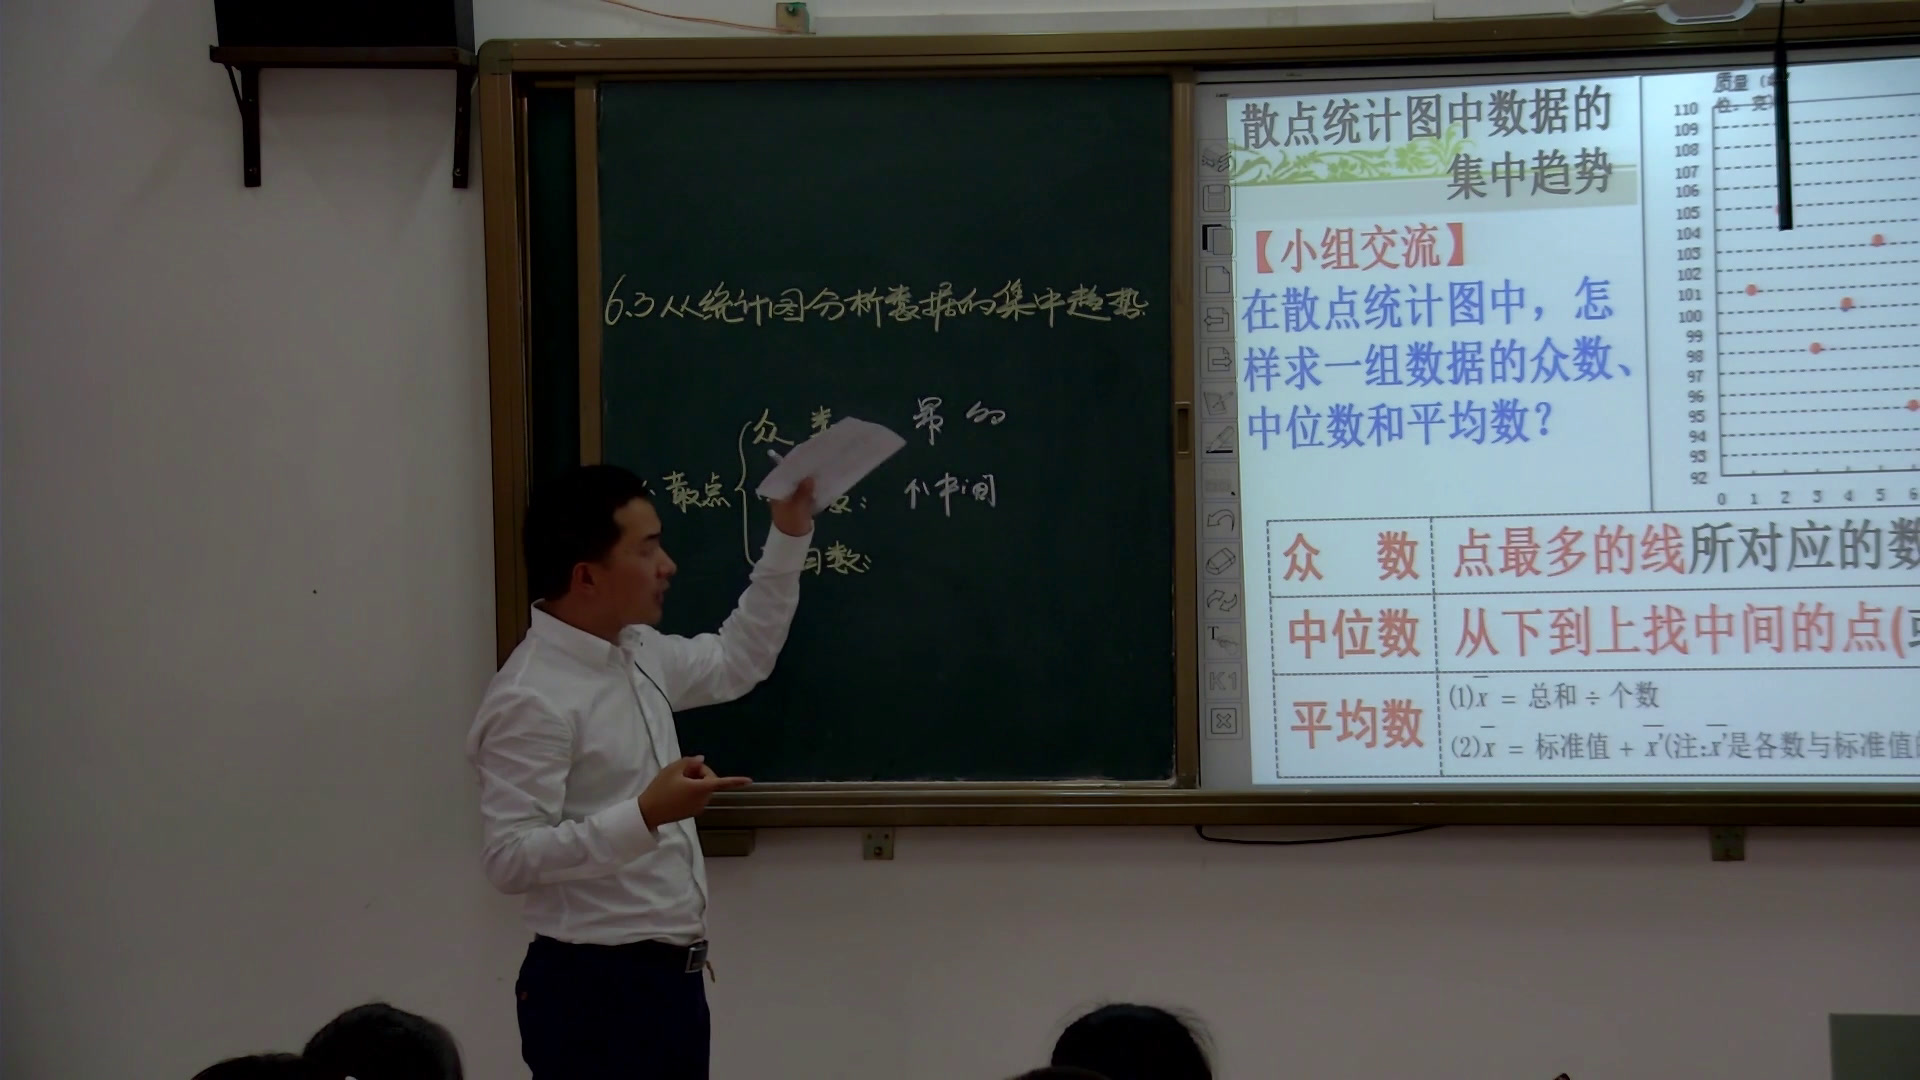 6.3从统计图分析数据的集中趋势
众
散点
数:
个中间
数:
散点统计图中数据的
集中趋势
【小组交流】
在散点统计图中，怎
样求一组数据的众数、
中位数和平均数？
质量
110
109
108
107
106
105
104
103
102
101
100
99
98
97
96
95
94
93
92
0 1 2 3 4 5 6
众 数 点最多的线所对应的数
中位数 从下到上找中间的点(
平均数 (1)x̄ = 总和 ÷ 个数
(2)x̄ = 标准值 + x̄'(注:x̄'是各数与标准值
T
K1